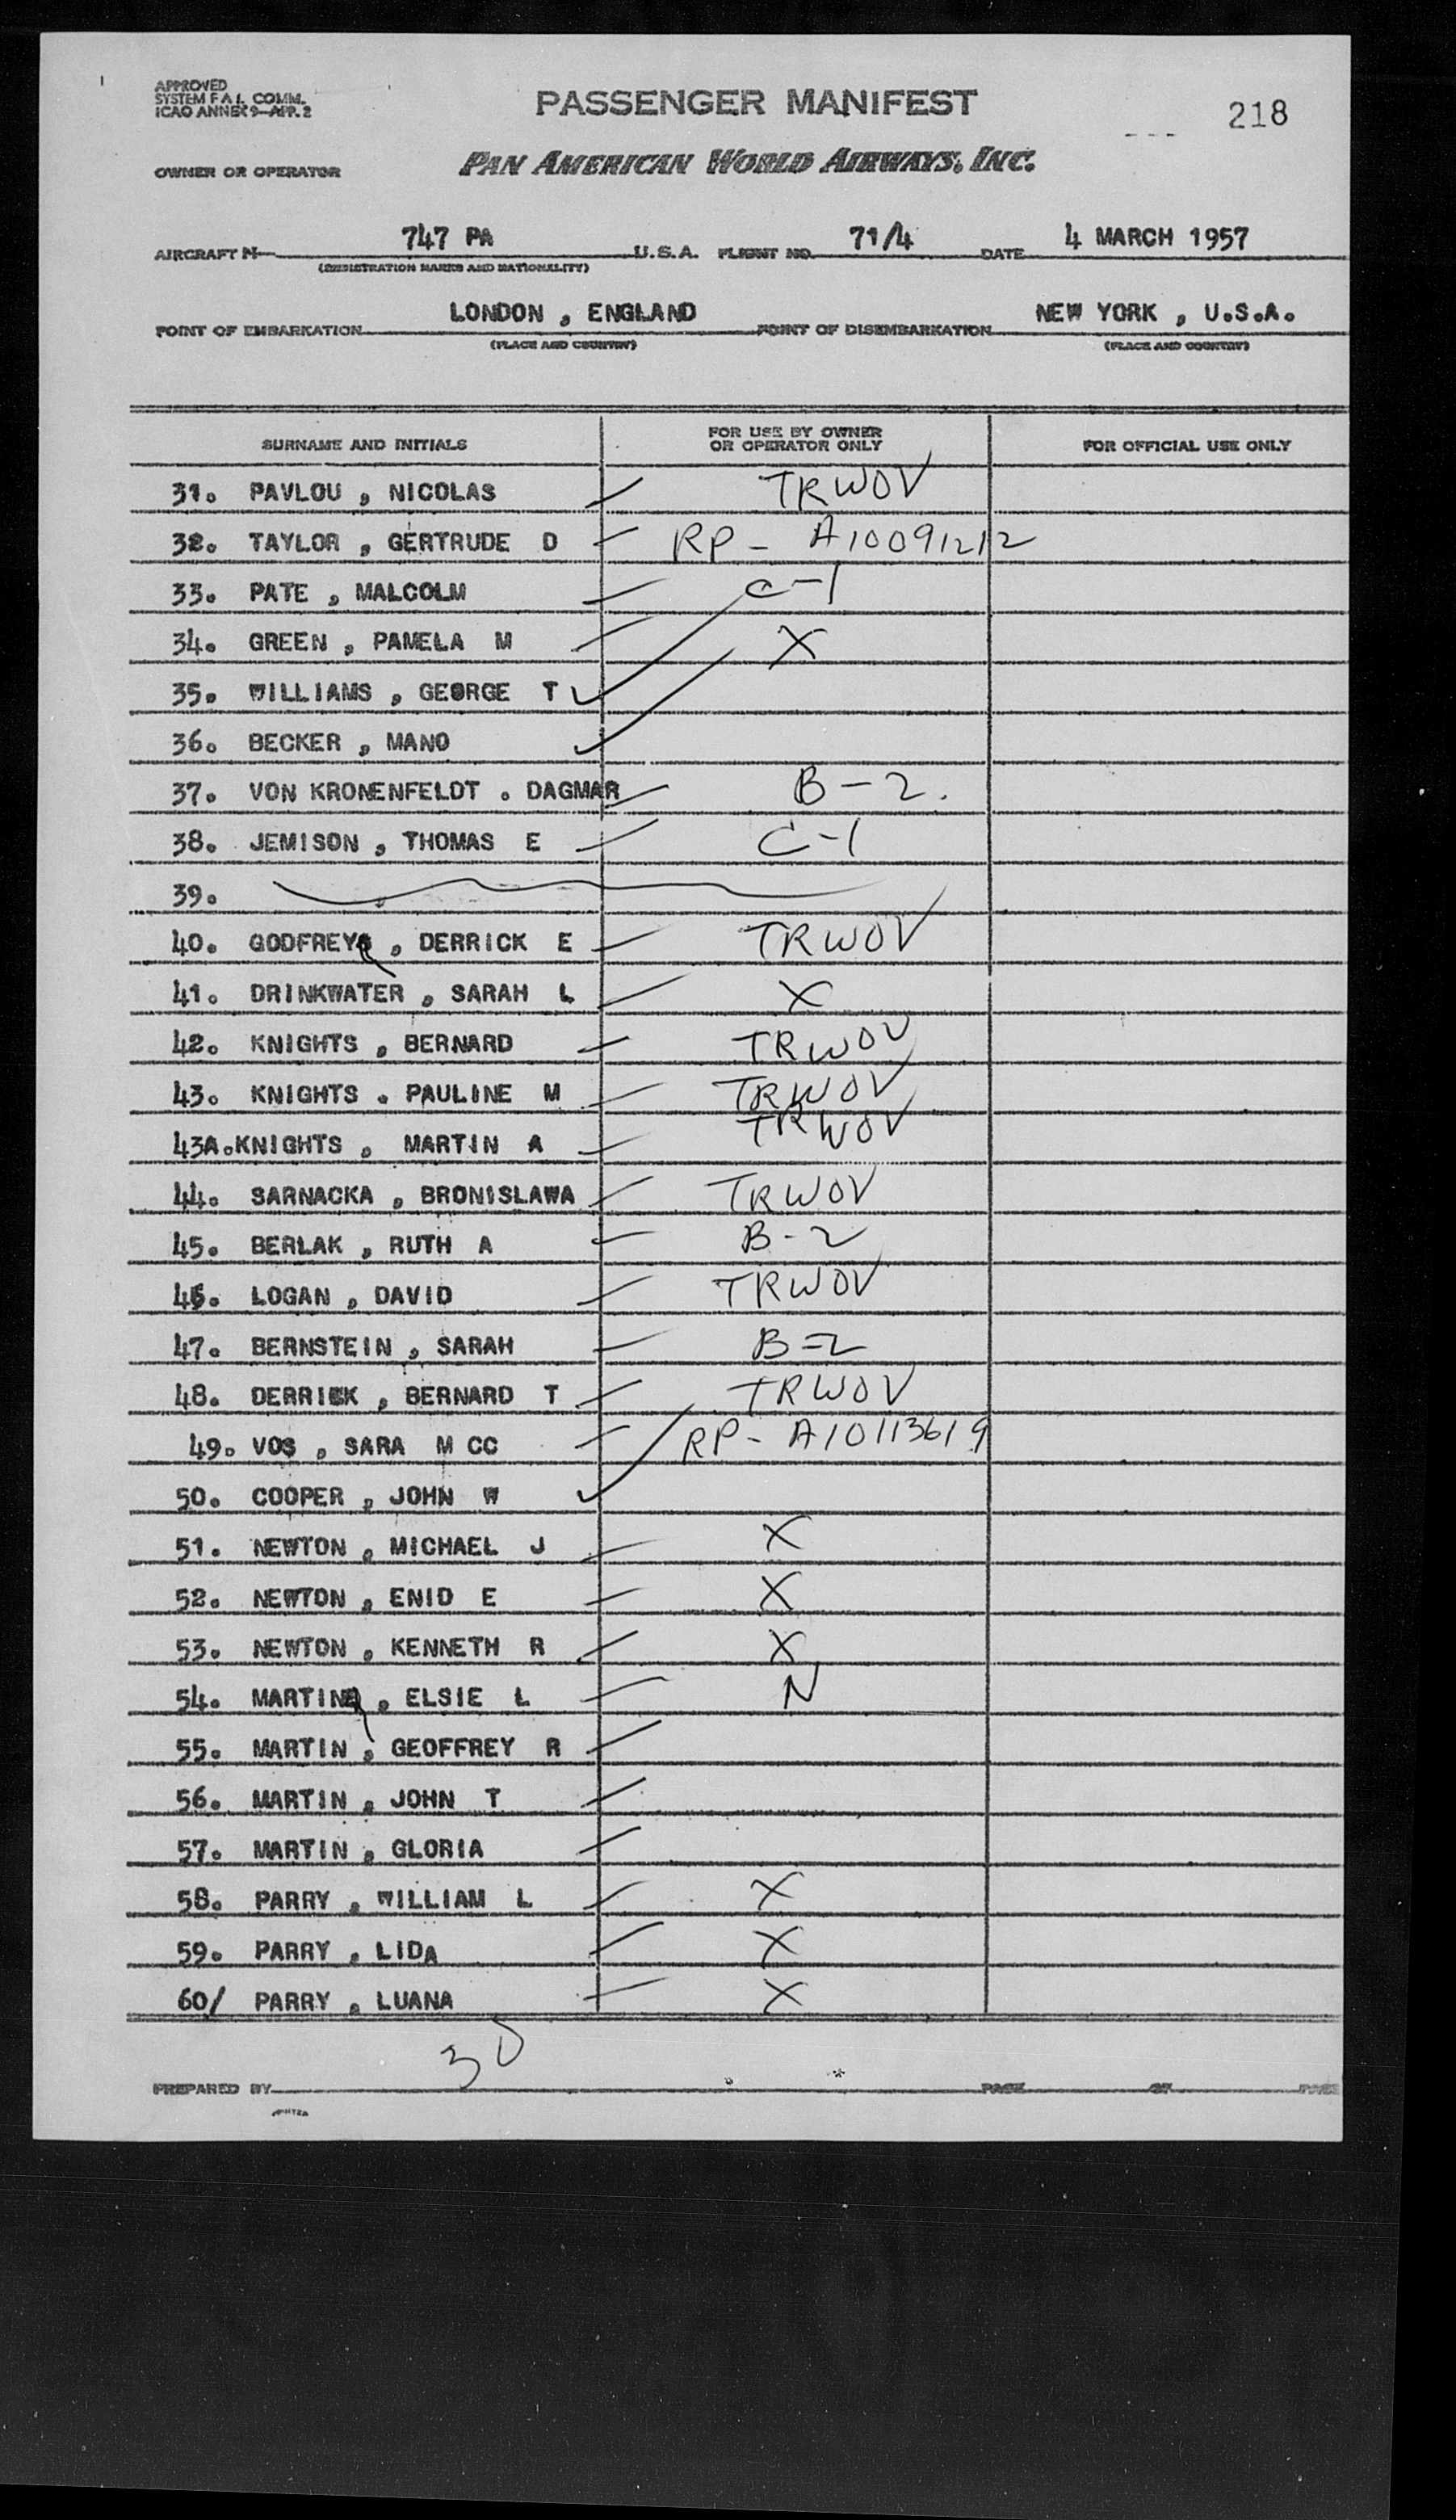 APPROVED
SYSTEM F A L COMM.
ICAO ANNEX 9—APP. 2
PASSENGER MANIFEST
218
OWNER OR OPERATOR
PAN AMERICAN WORLD AIRWAYS, INC.
AIRCRAFT N 747 PA U.S.A. FLIGHT NO. 71/4 DATE 4 MARCH 1957
(REGISTRATION MARKS AND NATIONALITY)
POINT OF EMBARKATION LONDON , ENGLAND POINT OF DISEMBARKATION NEW YORK , U.S.A.
(PLACE AND COUNTRY) (PLACE AND COUNTRY)
SURNAME AND INITIALS FOR USE BY OWNER OR OPERATOR ONLY FOR OFFICIAL USE ONLY
31. PAVLOU , NICOLAS TRWOV
32. TAYLOR , GERTRUDE D RP - A10091212
33. PATE , MALCOLM C-1
34. GREEN , PAMELA M X
35. WILLIAMS , GEORGE T
36. BECKER , MANO
37. VON KRONENFELDT . DAGMAR B-2.
38. JEMISON , THOMAS E C-1
39.
40. GODFREY , DERRICK E TRWOV
41. DRINKWATER , SARAH L X
42. KNIGHTS , BERNARD TRWOV
43. KNIGHTS . PAULINE M TRWOV
43A.KNIGHTS , MARTIN A TRWOV
44. SARNACKA , BRONISLAWA TRWOV
45. BERLAK , RUTH A B-2
46. LOGAN , DAVID TRWOV
47. BERNSTEIN , SARAH B-2
48. DERRICK , BERNARD T TRWOV
49. VOS , SARA M CC RP- A10113619
50. COOPER , JOHN W
51. NEWTON , MICHAEL J X
52. NEWTON , ENID E X
53. NEWTON , KENNETH R X
54. MARTIN , ELSIE L N
55. MARTIN , GEOFFREY R
56. MARTIN , JOHN T
57. MARTIN , GLORIA
58. PARRY , WILLIAM L X
59. PARRY , LIDA X
60/ PARRY , LUANA X
30
PREPARED BY PAGE OF PAGE